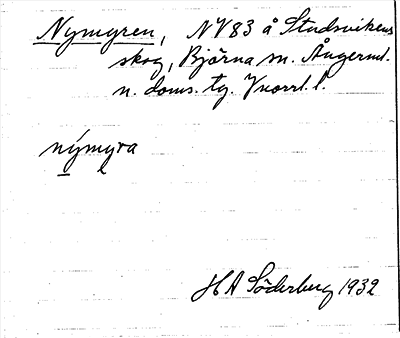 Nymyren, NV83 å Studsvikens
skog, Björna sn. Ångerml.
n. doms. tg. Vnorrl. l.
nýmyra
HA Söderberg 1932